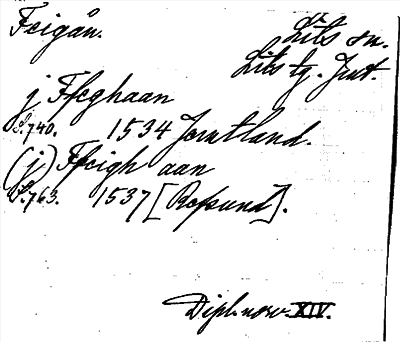 Feigån. Lits sn.
Lits tg. Jmt.
j Ffeghaan
S. 740. 1534 Jemtland.
(j) Ffeigh aan
S. 763. 1537 [Refsund].
Dipl. norv. XIV.